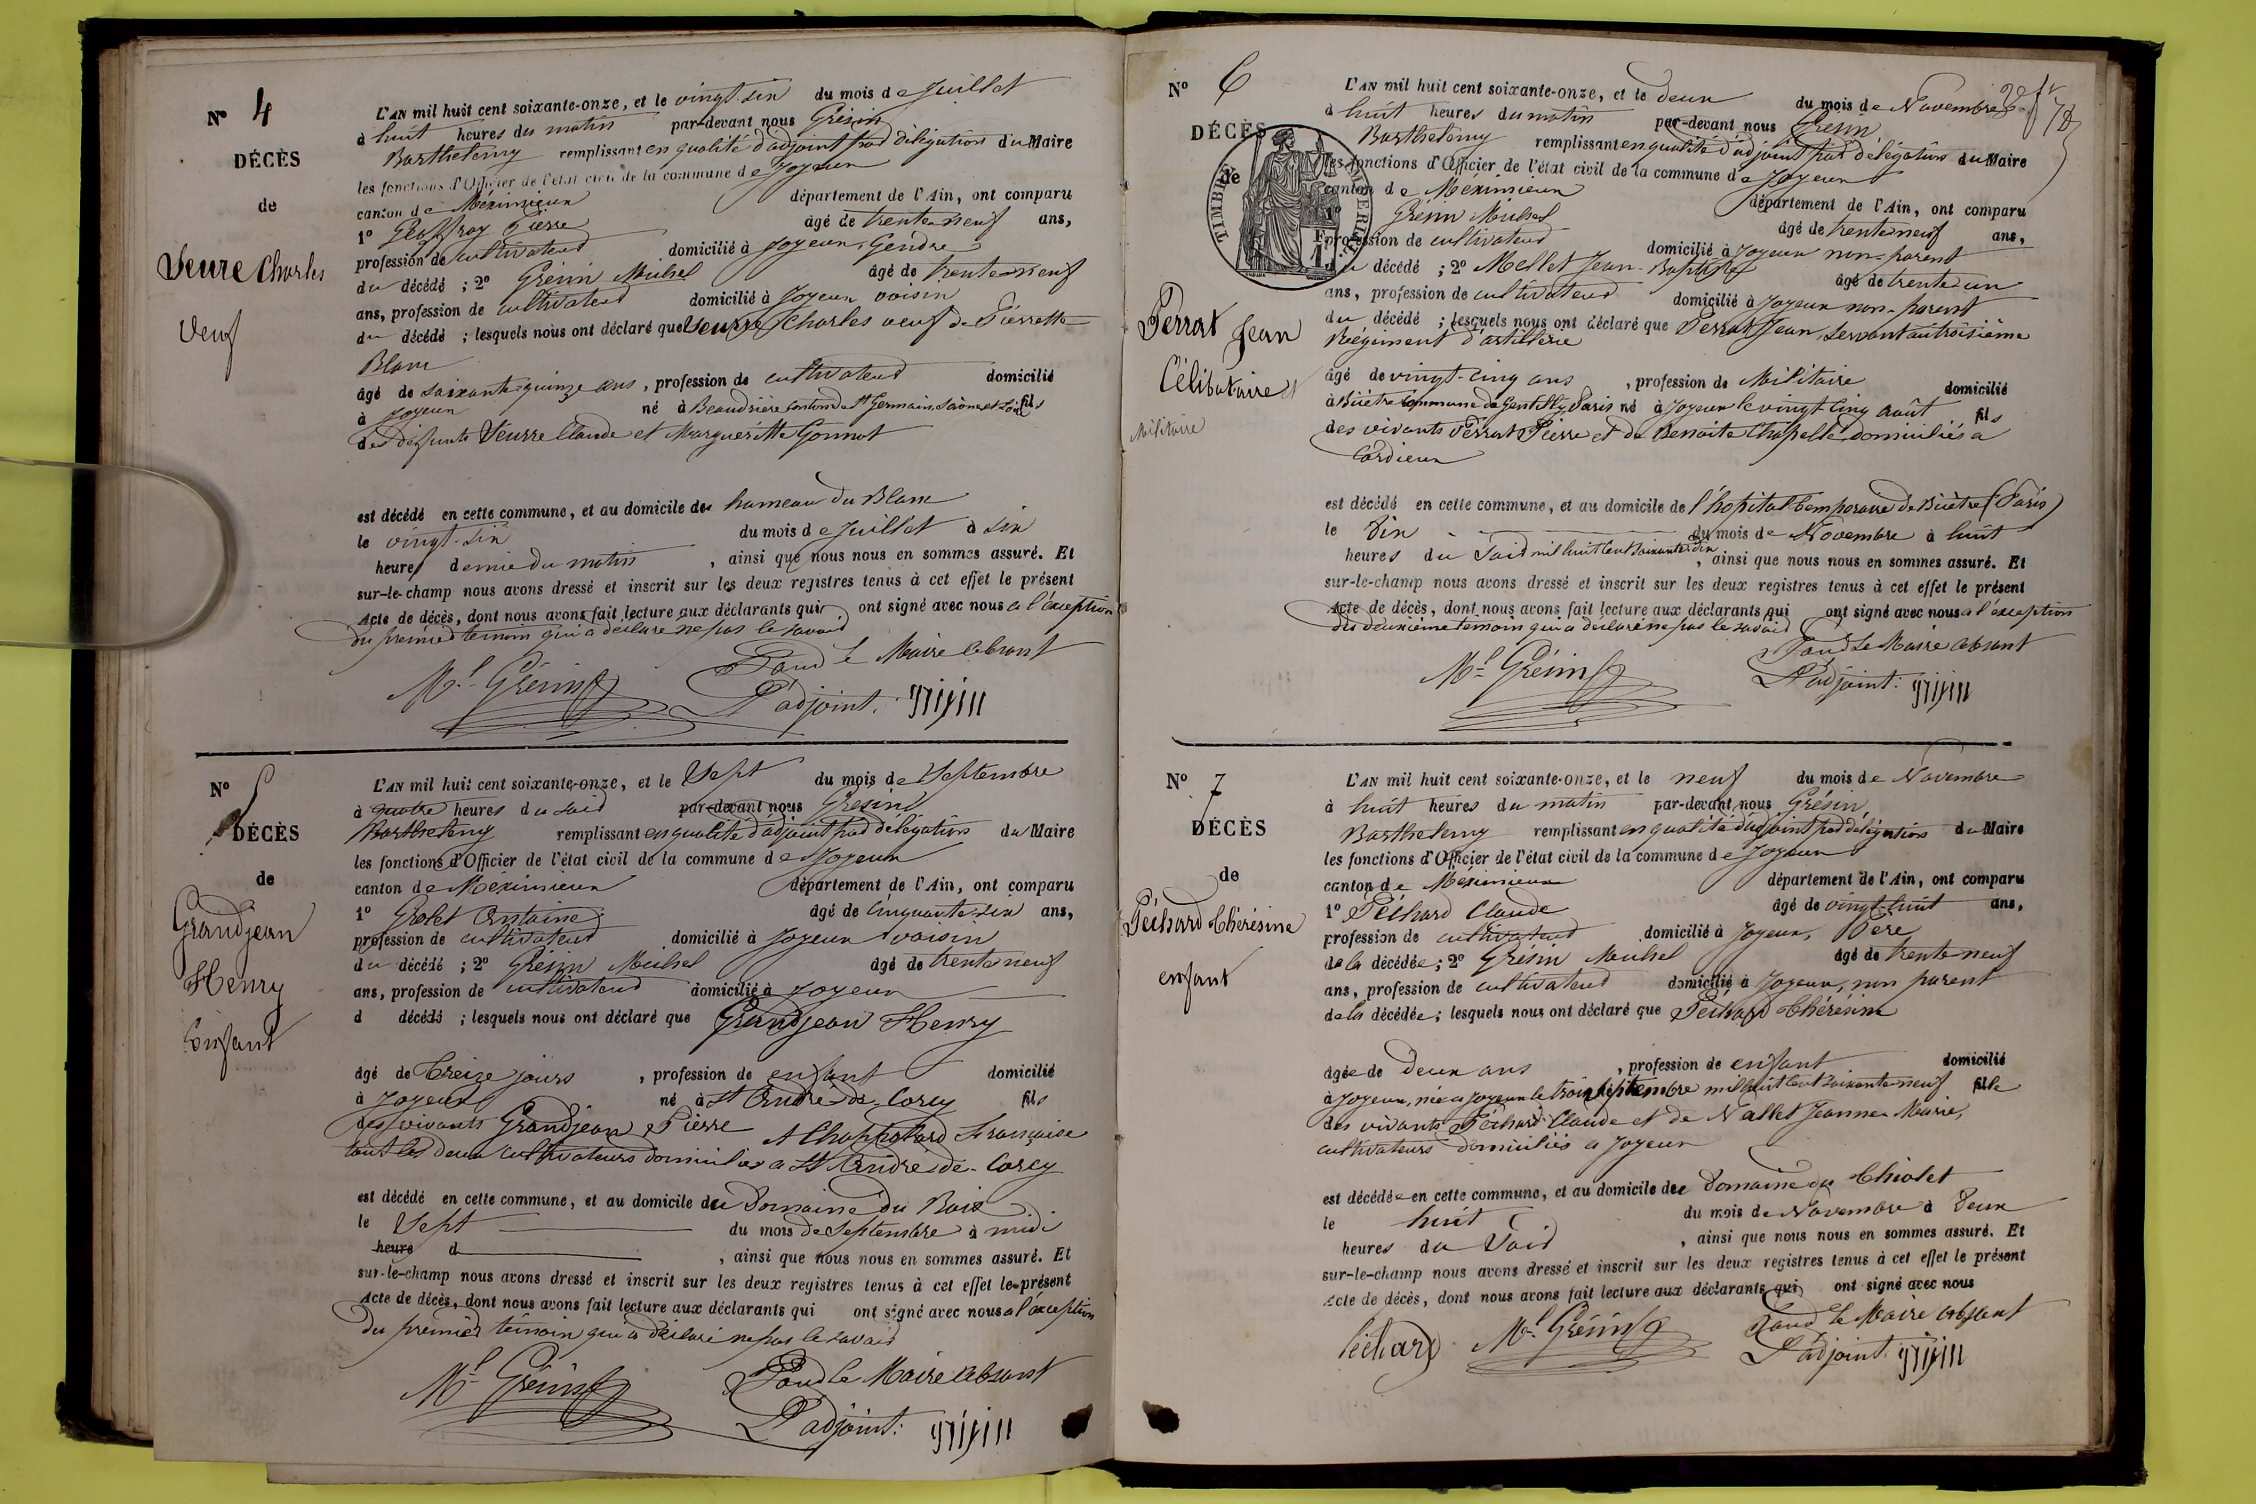 N° 4
DÉCÈS
de
Seure Charles
veuf
L'AN mil huit cent soixante-onze, et le vingt-six du mois de Juillet
à huit heures du matin par-devant nous Grésin
Barthelemy remplissant en qualité d'adjoint par délégation du Maire
les fonctions d'Officier de l'état civil de la commune de Joyeux
canton de Méximieux département de l'Ain, ont comparu
1° Geoffray Pierre âgé de trente-neuf ans,
profession de cultivateur domicilié à Joyeux, Gendre
du décédé ; 2° Grésin Michel âgé de trente-neuf
ans, profession de cultivateur domicilié à Joyeux voisin
du décédé ; lesquels nous ont déclaré que Seurre Charles veuf de Pierrette
Blanc
âgé de soixante-quinze ans, profession de cultivateur domicilié
à Joyeux né à Beaudrière canton de St Germain, Saône et Loire fils
des défunts Seurre Claude et Marguéritte Gonnot
est décédé en cette commune, et au domicile du hameau du Blanc
le vingt-six du mois de Juillet à six
heures demie du matin, ainsi que nous nous en sommes assuré. Et
sur-le-champ nous avons dressé et inscrit sur les deux registres tenus à cet effet le présent
Acte de décès, dont nous avons fait lecture aux déclarants qui ont signé avec nous a l'éxception
du premier témoin qui a déclaré ne pas le savoir
Ml Grésin Pour le Maire absant
L'adjoint: grisin
N° 5
DÉCÈS
de
Grandjean
Henry
Enfant
L'AN mil huit cent soixante-onze, et le Sept du mois de Septembre
à quatre heures du soir par-devant nous Grésin
Barthelemy remplissant en qualité d'adjoint par délégation du Maire
les fonctions d'Officier de l'état civil de la commune de Joyeux
canton de Méximieux département de l'Ain, ont comparu
1° Grolet Antoine âgé de cinquante-six ans,
profession de cultivateur domicilié à Joyeux voisin
du décédé ; 2° Grésin Michel âgé de trente-neuf
ans, profession de cultivateur domicilié à Joyeux
d décédé ; lesquels nous ont déclaré que Grandjean Henry
âgé de treize jours, profession de enfant domicilié
à Joyeux né à St André-de-Corcy fils
des vivants Grandjean Pierre et Chappolard Françoise
tout les deux cultivateurs domiciliés a St André-de-Corcy
est décédé en cette commune, et au domicile du Domaine du Bois
le Sept du mois de Septembre à midi
heure d, ainsi que nous nous en sommes assuré. Et
sur-le-champ nous avons dressé et inscrit sur les deux registres tenus à cet effet le présent
Acte de décès, dont nous avons fait lecture aux déclarants qui ont signé avec nous a l'éxception
du premier témoin qui a déclaré ne pas le savoir
Ml Grésin Pour le Maire absant
L'adjoint: grisin
N° 6
DÉCÈS
de
TIMBRE
1 F
Perrat Jean
Célibataire et
Militaire
L'AN mil huit cent soixante-onze, et le deux du mois de Novembre
à huit heures du matin par-devant nous Grésin
Barthelemy remplissant en qualité d'adjoint par délégation du Maire
les fonctions d'Officier de l'état civil de la commune de Joyeux
canton de Méximieux département de l'Ain, ont comparu
1° Grésin Michel âgé de trente-neuf ans,
profession de cultivateur domicilié à Joyeux non-parent
du décédé ; 2° Mellet Jean-Baptiste âgé de trente-un
ans, profession de cultivateur domicilié à Joyeux non-parent
du décédé ; lesquels nous ont déclaré que Perrat Jean, servant au troisième
Régiment d'artillerie
âgé de vingt-cinq ans, profession de Militaire domicilié
à Bicêtre commune de Gentilly Paris né à Joyeux le vingt cinq août fils
des vivants Perrat Pierre et de Benoite Chapelle, domiciliés a
Cordieux
est décédé en cette commune, et au domicile de l'hopital temporaire de Bicètre (Paris)
le Dix du mois de Novembre à huit
heures du Soir mil huit cent soixante-dix, ainsi que nous nous en sommes assuré. Et
sur-le-champ nous avons dressé et inscrit sur les deux registres tenus à cet effet le présent
Acte de décès, dont nous avons fait lecture aux déclarants qui ont signé avec nous a l'éxception
du deuxième temoin qui a déclaré ne pas le savoir
Ml Grésin Pour le Maire absant
L'adjoint: grisin
N° 7
DÉCÈS
de
Péchard Thérésine
enfant
L'AN mil huit cent soixante-onze, et le neuf du mois de Novembre
à huit heures du matin par-devant nous Grésin
Barthelemy remplissant en qualité d'adjoint par délégation du Maire
les fonctions d'Officier de l'état civil de la commune de Joyeux
canton de Méximieux département de l'Ain, ont comparu
1° Péchard Claude âgé de vingt-huit ans,
profession de cultivateur domicilié à Joyeux, Père
de la décédée ; 2° Grésin Michel âgé de trente-neuf
ans, profession de cultivateur domicilié à Joyeux, non parent
de la décédée ; lesquels nous ont déclaré que Péchard Thérésine
âgée de Deux ans, profession de enfant domicilié
à Joyeux, née a Joyeux le trois septembre mil huit cent soixante-neuf fille
des vivants Péchard Claude et de Nallet Jeanne-Marie,
cultivateurs domiciliés a Joyeux
est décédée en cette commune, et au domicile du Domaine du Chiolet
le huit du mois de Novembre à Deux
heures du Soir, ainsi que nous nous en sommes assuré. Et
sur-le-champ nous avons dressé et inscrit sur les deux registres tenus à cet effet le présent
Acte de décès, dont nous avons fait lecture aux déclarants qui ont signé avec nous
Péchard Ml Grésin Pour le Maire absant
L'adjoint: grisin